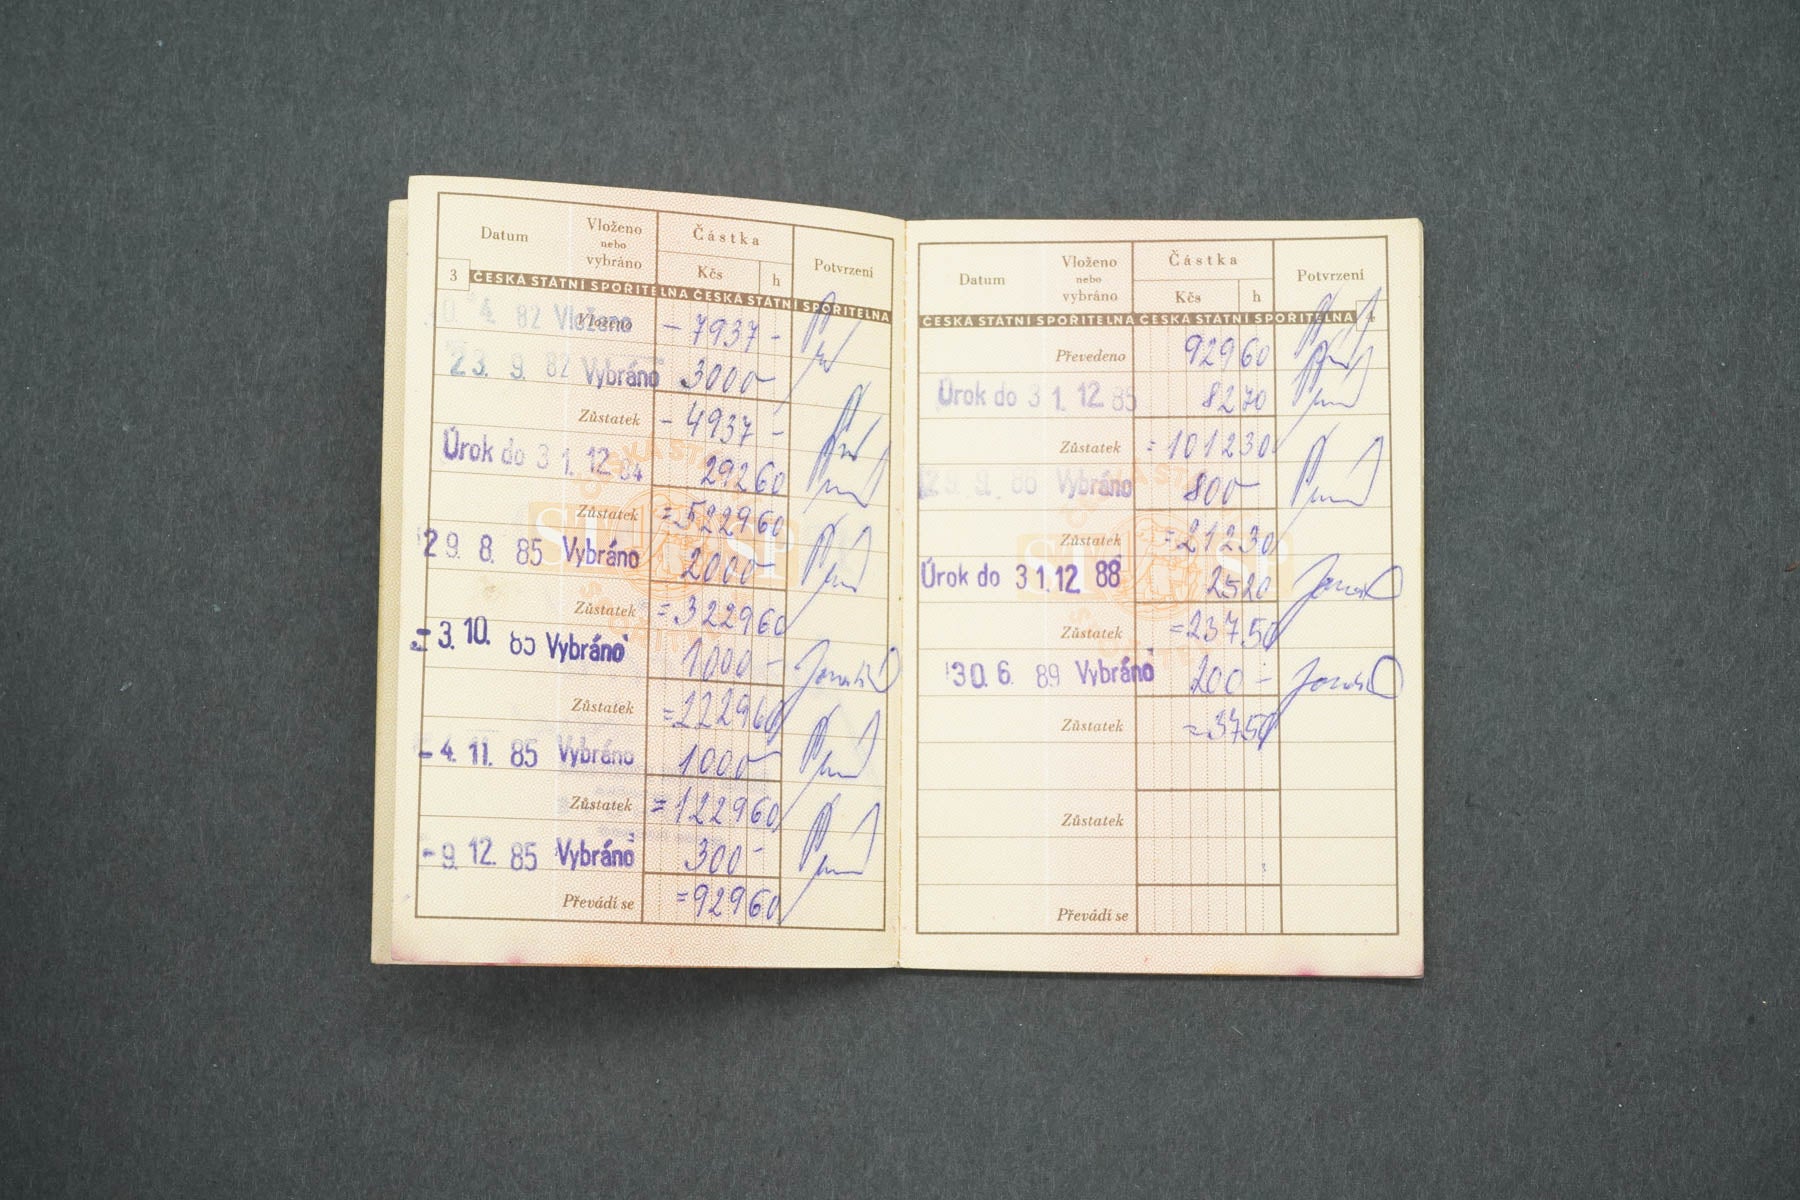 Datum Vloženo nebo vybráno Částka Kčs h Potvrzení
3 ČESKÁ STÁTNÍ SPOŘITELNA ČESKÁ STÁTNÍ SPOŘITELNA
0. 4. 82 Vloženo - 7937 -
23. 9. 82 Vybráno 3000 -
Zůstatek - 4937 -
Úrok do 31. 12. 84 292 60
Zůstatek = 5229 60
29. 8. 85 Vybráno 2000 -
Zůstatek = 3229 60
- 3. 10. 85 Vybráno 1000 -
Zůstatek = 2229 60
- 4. 11. 85 Vybráno 1000 -
Zůstatek = 1229 60
- 9. 12. 85 Vybráno 300 -
Převádí se = 929 60
Datum Vloženo nebo vybráno Částka Kčs h Potvrzení
ČESKÁ STÁTNÍ SPOŘITELNA ČESKÁ STÁTNÍ SPOŘITELNA 4
Převedeno 929 60
Úrok do 31. 12. 85 82 70
Zůstatek = 1012 30
29. 9. 86 Vybráno 800 -
Zůstatek = 212 30
Úrok do 31. 12. 88 25 20
Zůstatek = 237 50
30. 6. 89 Vybráno 200 -
Zůstatek = 37 50
Zůstatek
Převádí se